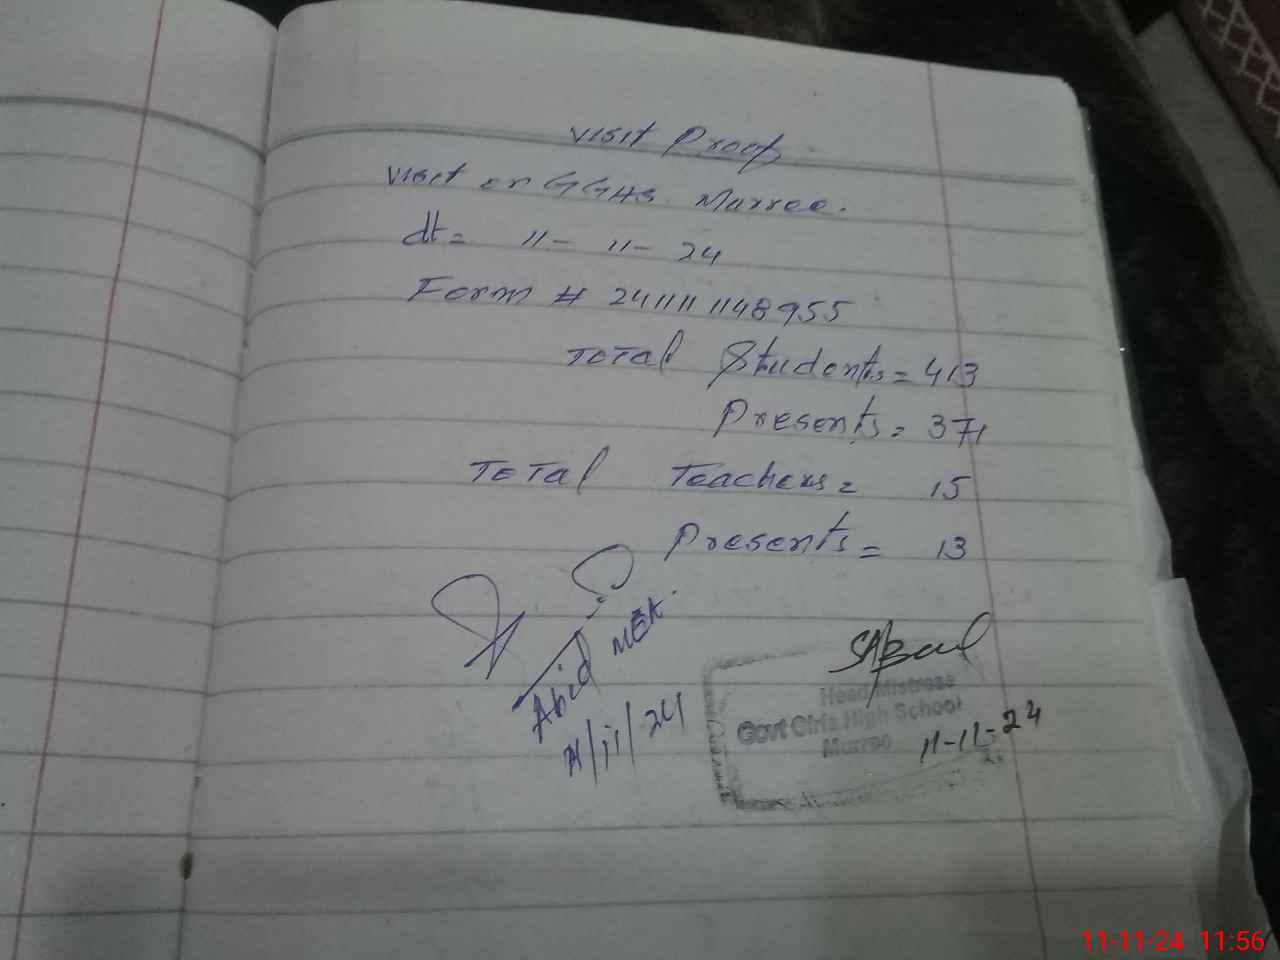 Visit Proof
Visit on GGHS Murree.
dt= 11-11-24
Form # 241111148955
Total Students = 413
Presents = 371
Total Teachers = 15
Presents = 13
Abid MEA.
11/11/24
Head Mistress
Govt Girls High School
Murree
11-11-24
11-11-24 11:56